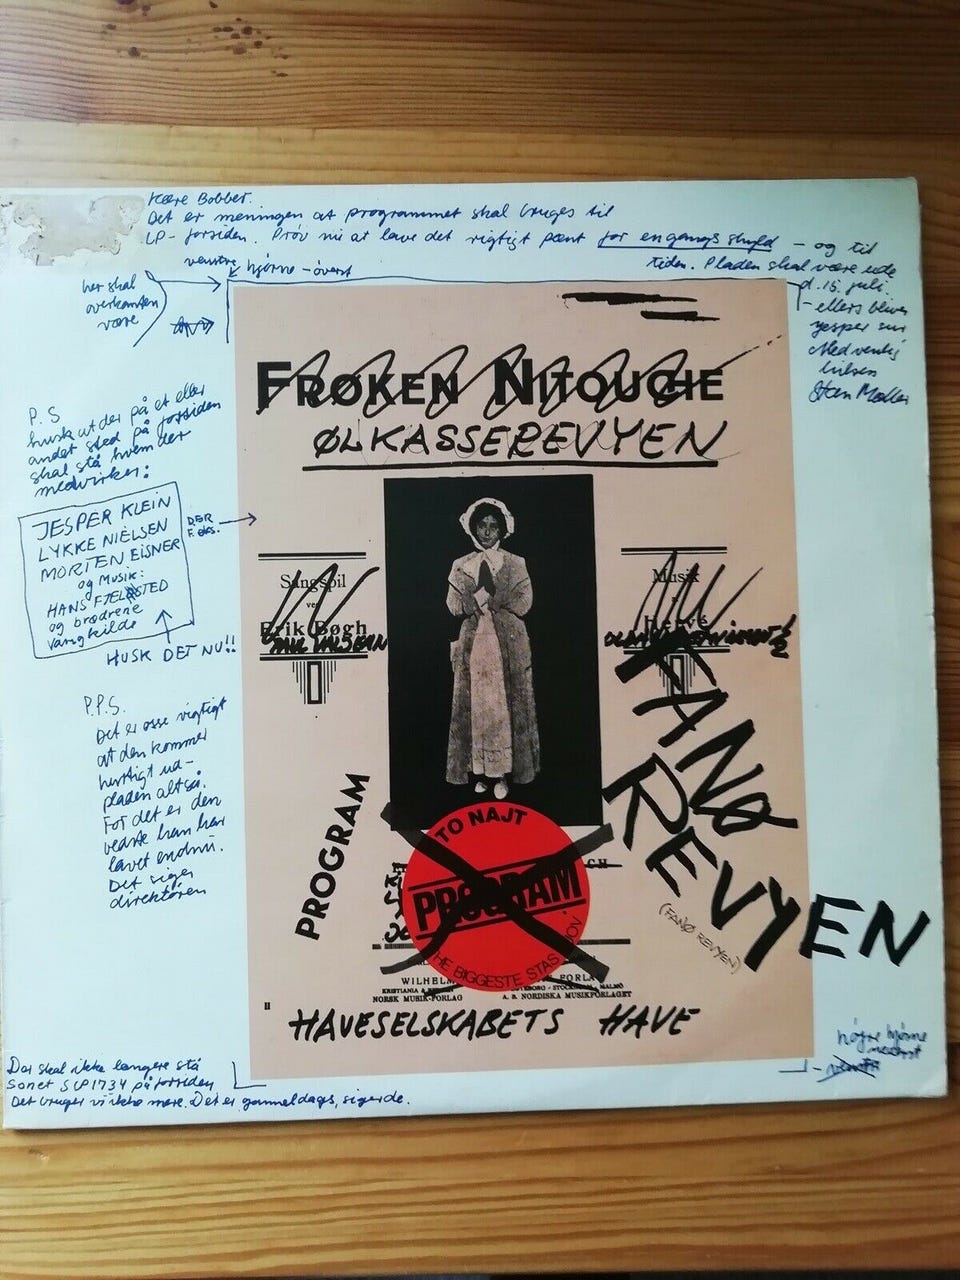 Kære Bobber.
Det er meningen at programmet skal bruges til
LP-forsiden. Prøv nu at lave det rigtigt pænt for engangs skyld - og til
tiden. Pladen skal være ude
d. 15. juli.
- ellers bliver
yesper sur
Med venlig
hilsen
Sten Møller
venstre hjørne - øverst
her skal
overkanten
være
FRØKEN NITOUCHE
ØLKASSEREVYEN
P.S
husk at der på et eller
andet sted på forsiden
skal stå hvem der
medvirker:
JESPER KLEIN
LYKKE NIELSEN
MORTEN EISNER
og MUSIK:
HANS FJELDSTED
og brødrene
vangkilde
DER
F. eks.
HUSK DET NU!!
Sangspil
ved
Erik Bøgh
Musik
Hervé
P.P.S.
Det er osse vigtigt
at den kommer
hurtigt ud -
pladen altså.
For det er den
bedste han har
lavet endnu.
Det siger
direktøren
PROGRAM
TO NAJT
PROGRAM
THE BIGGESTE STAS
FANØ
REVYEN
(FANØ REVYEN)
WILHELM
KRISTIANIA &
NORSK MUSIK-FORLAG
FORLAG
GÖTEBORG - STOCKHOLM - MALMÖ
A. B. NORDISKA MUSIKFÖRLAGET
II
HAVESELSKABETS HAVE
højre hjørne
nederst
- venstre
Der skal ikke længere stå
Sonet SLP1734 på forsiden
Det bruger vi ikke mere. Det er gammeldags, siger de.